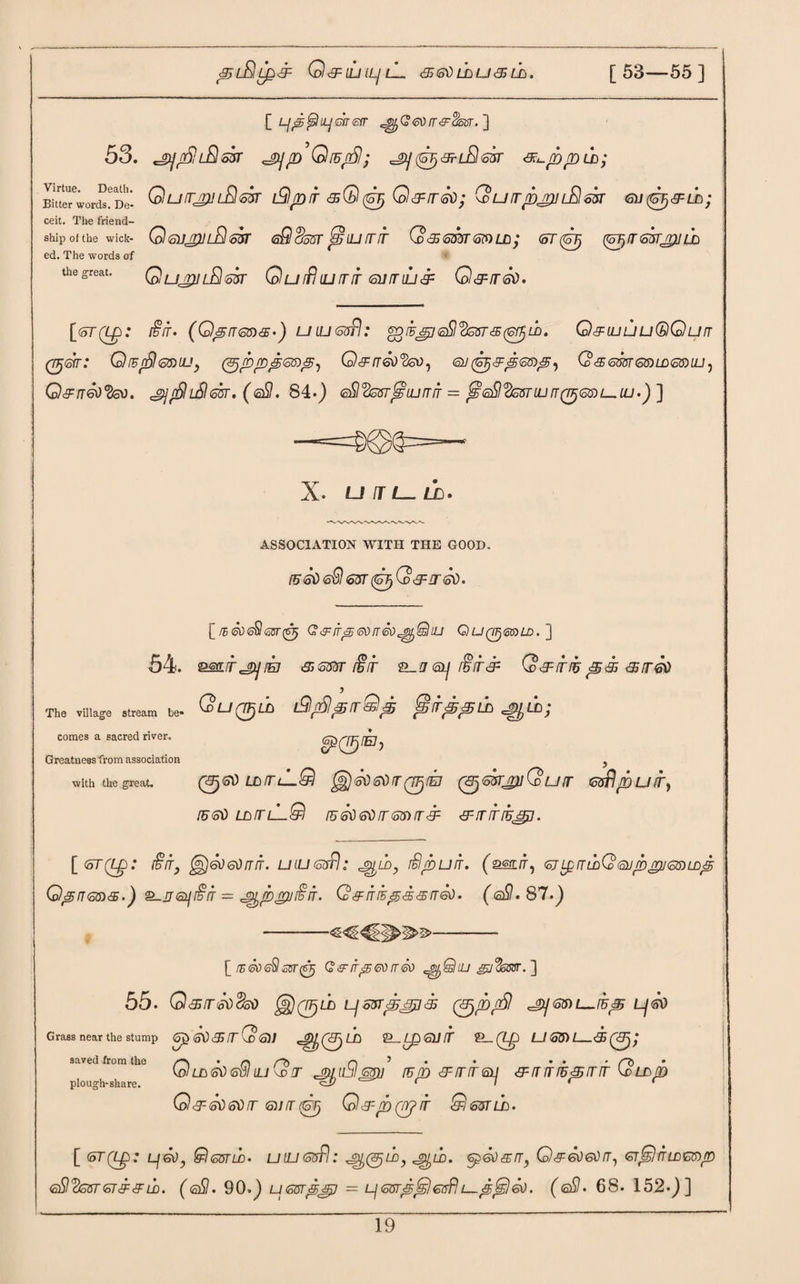 தமிழ்ச் செய்யுட் கலம்பகம். [ 53—55 ]
[ புத்தியுள்ள ஆலோசனை. ]
53. அறிமின் அற நெறி; அஞ்சுமின் கூற்றம்;
Virtue. Death. Bitter words. De- பொறுமின் பிறர் கடுஞ் சொல்; போற்றுமின் வஞ்சம்;
ceit. The friend-
ship of the wick- வெறுமின் வினை தீயார் கேண்மை; எஞ் ஞான்றும்
ed. The words of
the great. பெறுமின் பெரியார் வாய்ச் சொல்.
[எழு: நீர். (தொகை.) பயனி: ஐந்துவினைகளும். செயப்படுபொ
ருள்: நெறியை, கூற்றத்தை, சொல்லை, வஞ்சத்தை, கேண்மையை,
சொல்லை. அறிமின். (வி. 84.) வினைதீயார் = தீவினையாருடைய.) ]
X. பாட்டம்.
ASSOCIATION WITH THE GOOD.
நல்லினஞ்சேரல்.
[ நல்லினஞ் சேர்தலாலாகிய பெருமை. ]
54. ஊர்அங் கண நீர் உரவு நீர்ச் சேர்ந் தக் கால்
The village stream be- பேரும் பிறிதாகித் தீர்த்தம் ஆம்;
comes a sacred river. ஓரும்,
Greatness from association
with the great. குல மாட்சி இல்லாரும் குன்றுபோ னிற்பர்,
நல மாட்சி நல்லாரைச் சார்ந்து.
[ எழு: நீர், இல்லார். பயனி: ஆம், நிற்பர். (ஊர், ஏழாம்வேற்றுமைத்
தொகை.) உரவுநீர் = ஆற்றுநீர். சேர்ந்தக்கால். (வி. 87.)
[ நல்லினஞ் சேர்தலால் ஆகிய துணை. ]
55. கொல்லை இரும் புனத்துக் குற்றி அடைந்த புல்
Grass near the stump ஒல்காவே ஆகும் உழவர் உழு படைக்கு;
saved from the
plough-share. மெல்லியரே ஆயினும் நற் சார்வு சார்ந்தார் மேற்
செல்லா வாஞ் செற்றார் சினம்.
[ எழு: புல், சினம். பயனி: ஆகும், ஆம். ஒல்கா, செல்லா, எதிர்மறை
வினைஎச்சம். (வி. 90.) புனத்து = புனத்தினிடத்தில். (வி. 68. 152.)]
19